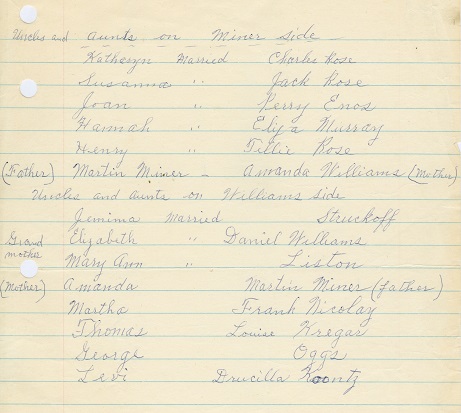 Uncles and aunts on Miner side -
Katharyn Married Charles Rose
Susanna " Jack Rose
Joan " Perry Enos
Hannah " Eliza Murray
Henry " Tillie Rose
(Father) Martin Miner - Amanda Williams (Mother)
Uncles and aunts on Williams side
Jemima married Struckoff
Grand mother Elizabeth " Daniel Williams
Mary Ann " Liston
(Mother) Amanda Martin Miner (father)
Martha Frank Nicolay
Thomas Louise Kregar
George Oggs
Levi Drucilla Koontz